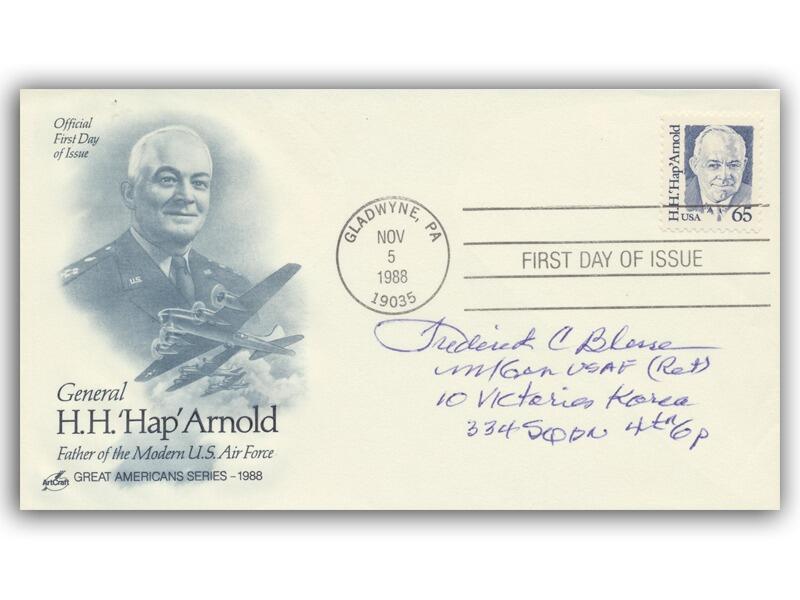 Official
First Day
of Issue
U.S.
General
H.H. 'Hap' Arnold
Father of the Modern U.S. Air Force
ArtCraft
GREAT AMERICANS SERIES - 1988
GLADWYNE, PA
NOV
5
1988
19035
H.H. 'Hap' Arnold
USA
65
FIRST DAY OF ISSUE
Frederick C Blesse
M/Gen USAF (Ret)
10 Victories Korea
334 SQDN 4th Gp